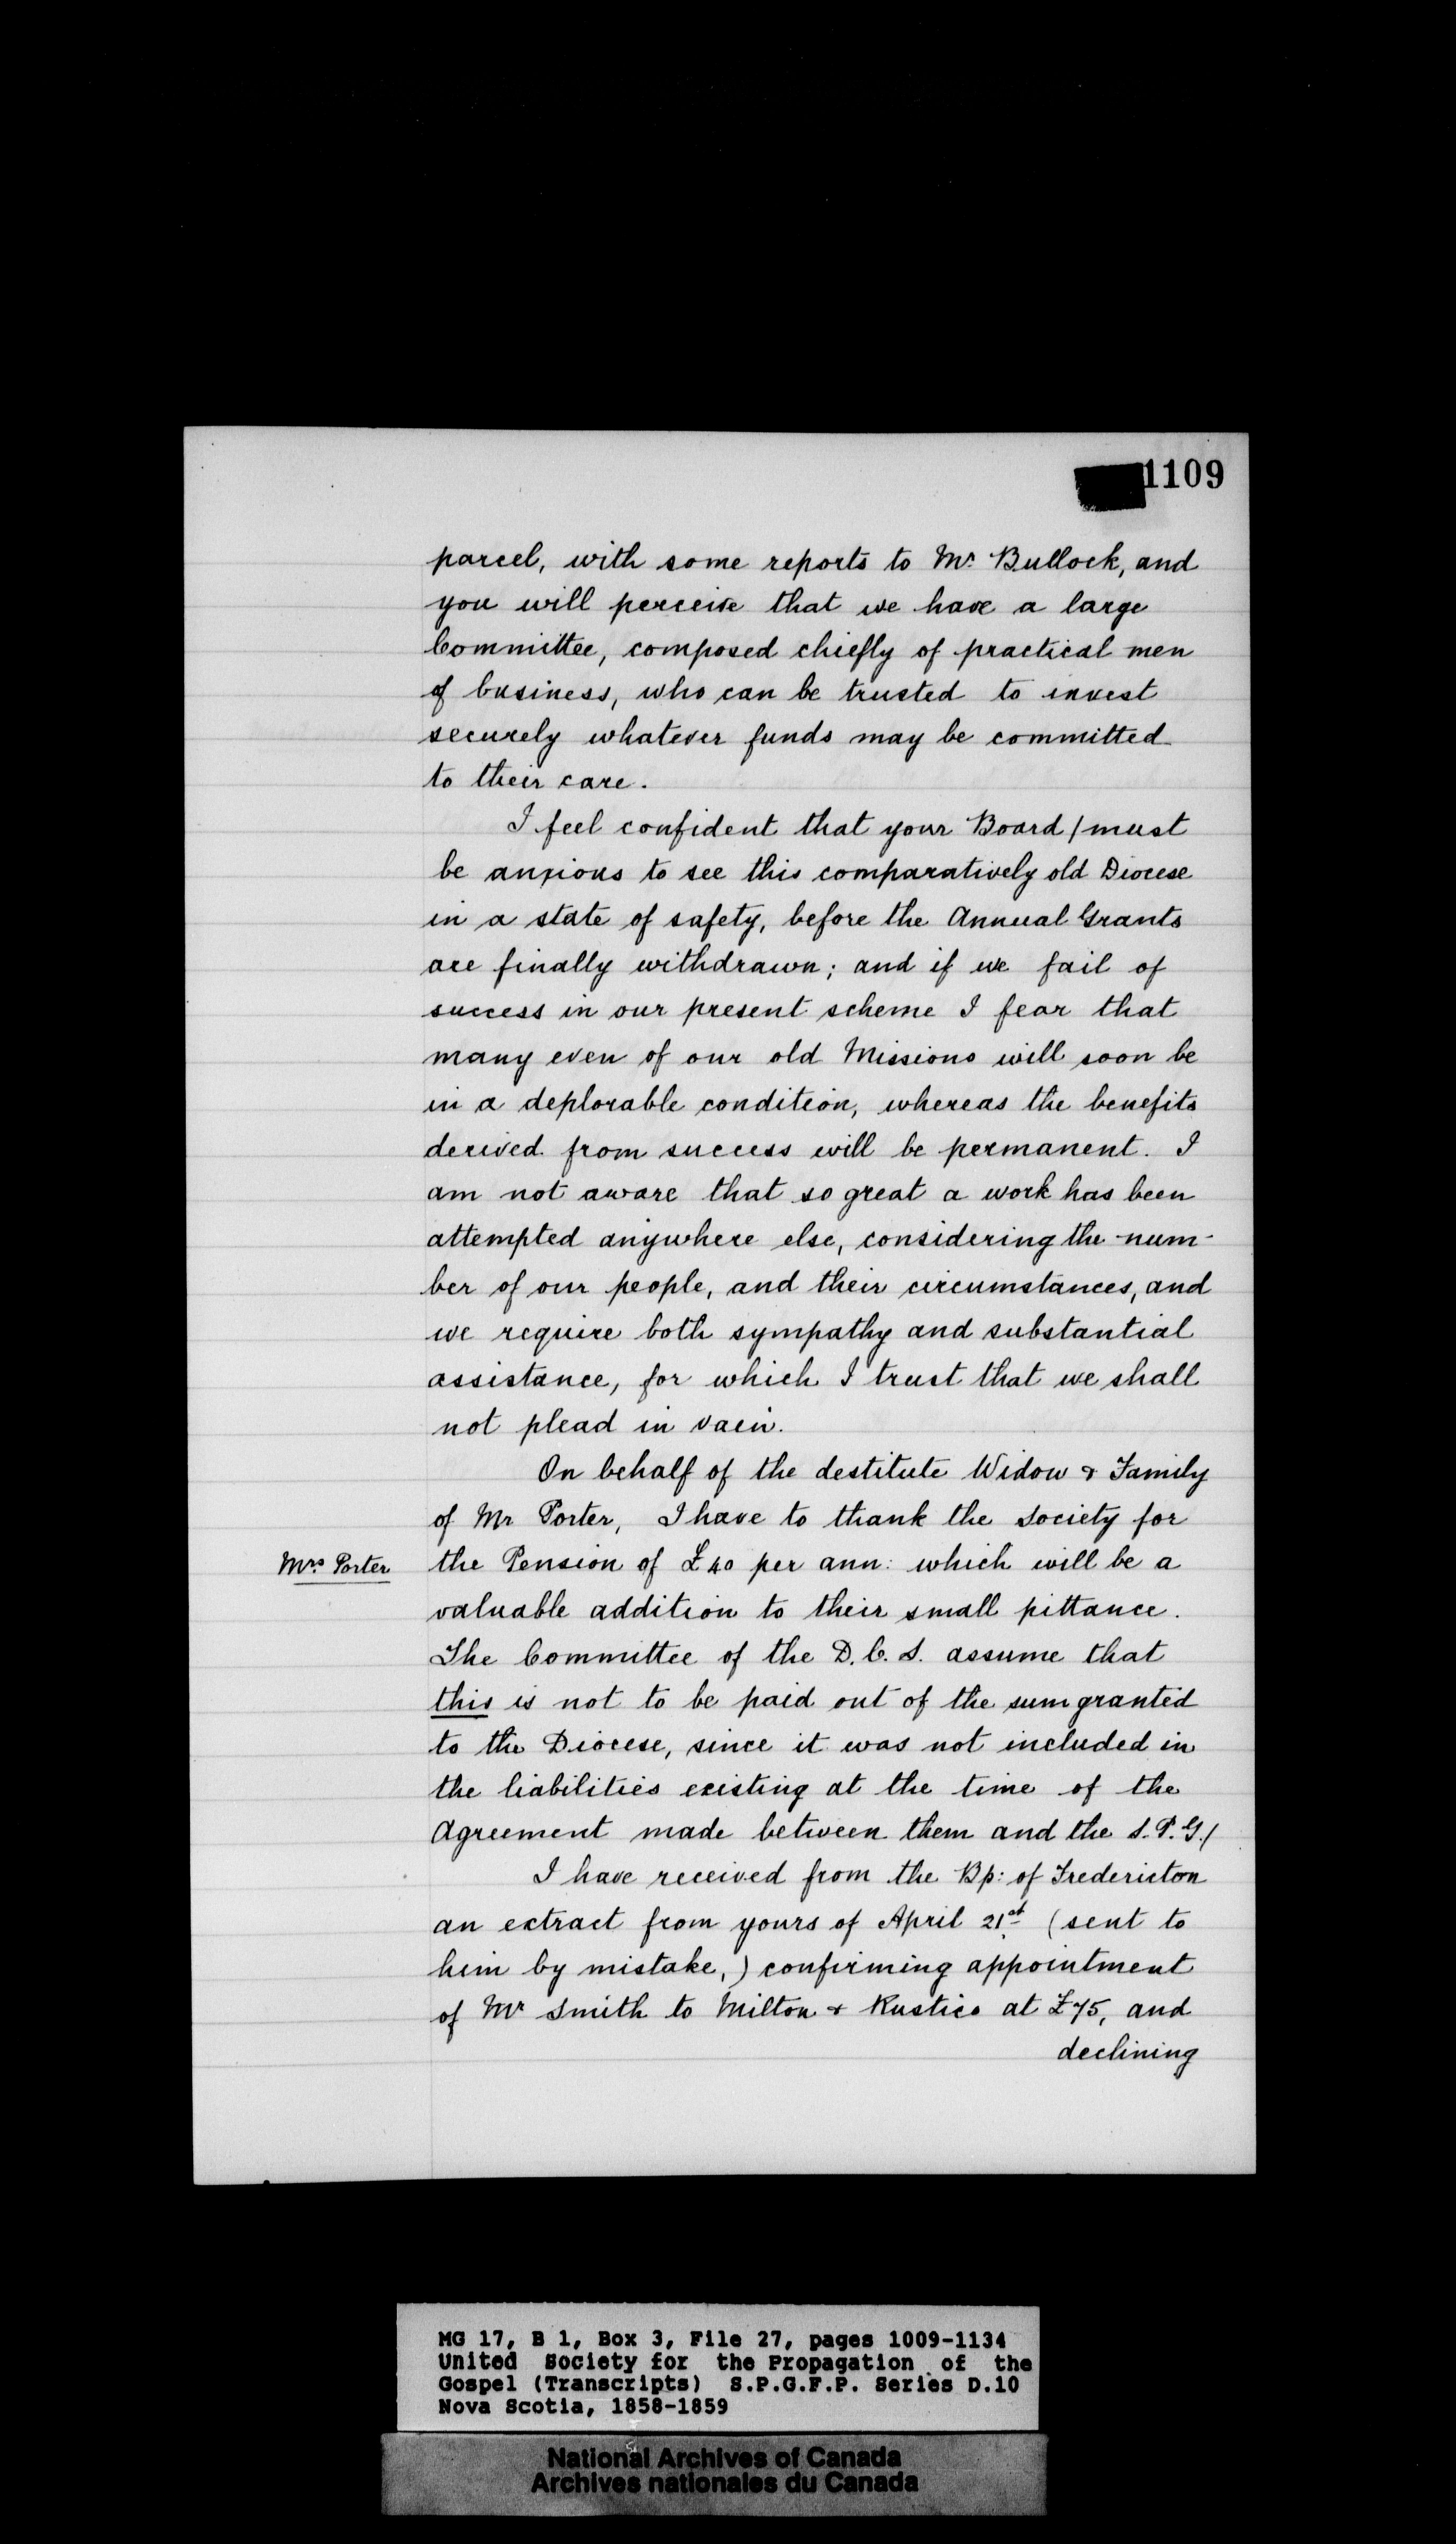 1109
parcel, with some reports to Mr. Bullock, and
you will perceive that we have a large
Committee, composed chiefly of practical men
of business, who can be trusted to invest
securely whatever funds may be committed
to their care.
I feel confident that your Board / must
be anxious to see this comparatively old Diocese
in a state of safety, before the Annual Grants
are finally withdrawn; and if we fail of
success in our present scheme I fear that
many even of our old Missions will soon be
in a deplorable condition, whereas the benefits
derived from success will be permanent. I
am not aware that so great a work has been
attempted anywhere else, considering the num-
ber of our people, and their circumstances, and
we require both sympathy and substantial
assistance, for which I trust that we shall
not plead in vain.
On behalf of the destitute Widow & Family
of Mr Porter, I have to thank the Society for
Mrs. Porter
the Pension of £40 per ann: which will be a
valuable addition to their small pittance.
The Committee of the D.C.S. assume that
this is not to be paid out of the sum granted
to the Diocese, since it was not included in
the liabilities existing at the time of the
Agreement made between them and the S.P.G./
I have received from the Bp: of Fredericton
an extract from yours of April 21st (sent to
him by mistake,) confirming appointment
of Mr Smith to Milton & Rustico at £75, and
declining
MG 17, B 1, Box 3, File 27, pages 1009-1134
United Society for the Propagation of the
Gospel (Transcripts) S.P.G.F.P. Series D.10
Nova Scotia, 1858-1859
National Archives of Canada
Archives nationales du Canada